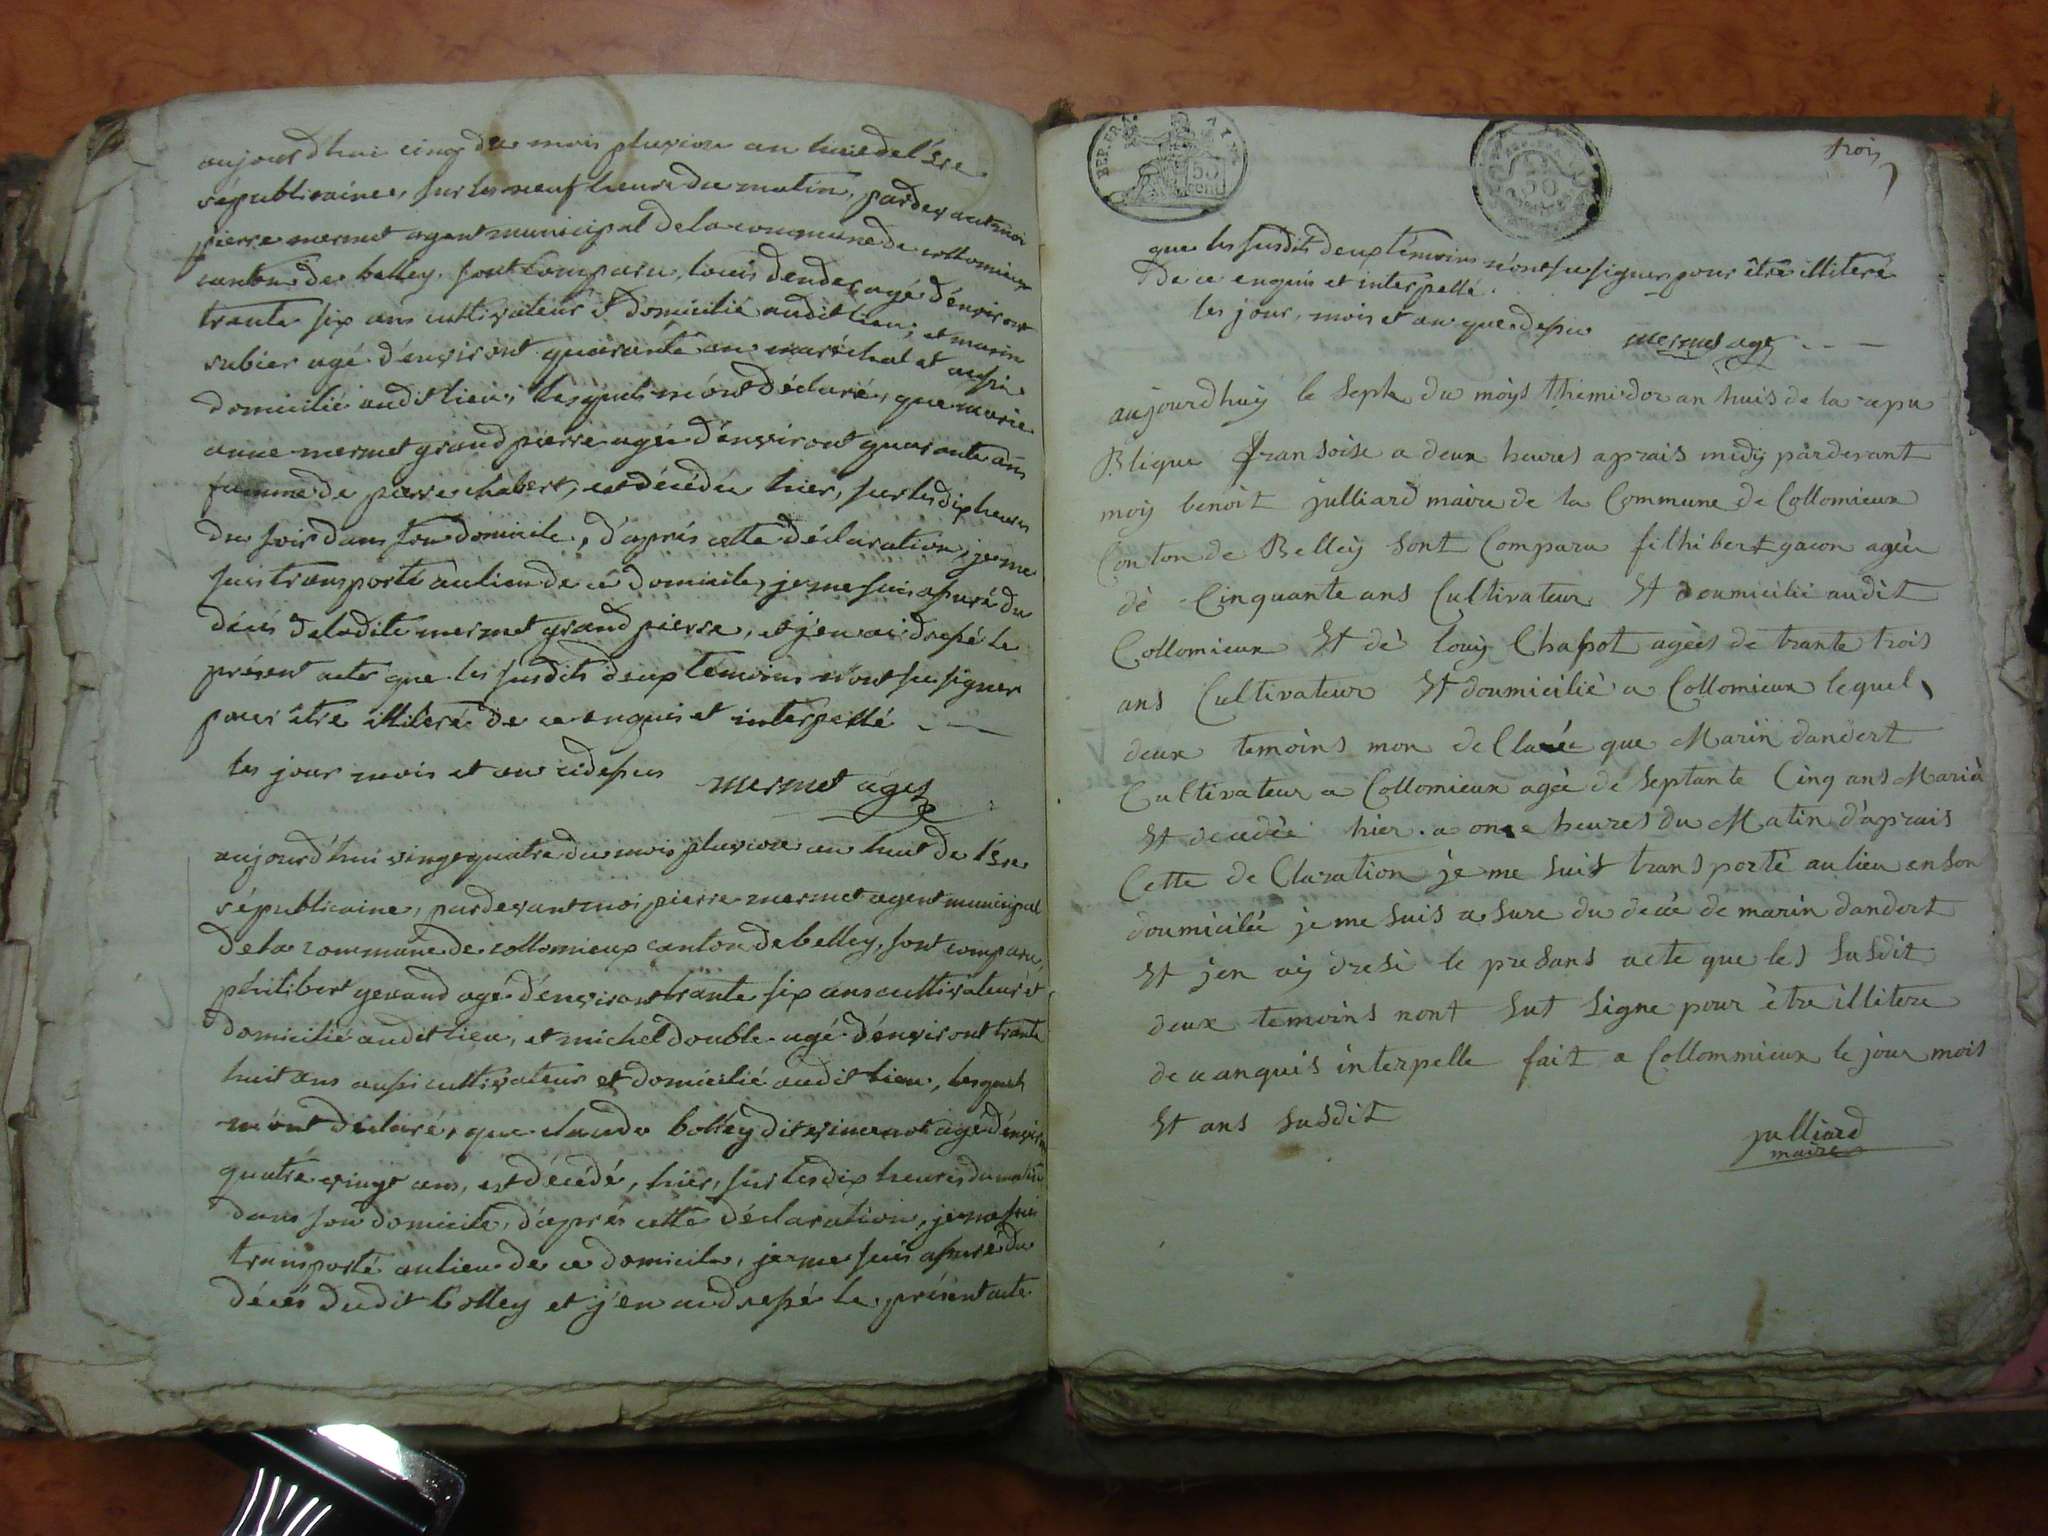 aujourd'hui cinq du mois pluviou an huit de l'ère
républicaine, sur les neuf heure du matin, pardevant moi
pierre mermet agent municipal de la commune de collomieux
canton de belley, sont comparu, louis dender agé d'environt
trante six ans cultivateur & domicilié audit lieu, et marin
subier agé d'environt quarante an maréchal et aussi
domicilié audit lieu, lesquels m'ont déclaré, que marie
anne mermet grand pierre agée d'environt quarante ans
femme de pierre chabert, est décédée hier, sur les dix heures
du soir dans son domicile, d'après cette déclaration, je me
suis transporté au lieu de ce domicile, je me suis assuré du
décès de ladite mermet grand pierre, et j'en ai dressé le
présent acte que les susdits deux témoins n'ont su signer
pour être illiteré de ce enquis et interpellé
les jour mois et an cidessus mermet agt
aujourd'hui vingt quatre du mois pluviou an huit de l'ère
républicaine, pardevant moi pierre mermet agent municipal
de la commune de collomieux canton de belley, sont comparu,
philibert gevaud agé d'environt trante six ans cultivateur et
domicilié audit lieu, et michel double agé d'environt trante
huit ans aussi cultivateur et domicilié audit lieu, lesquels
m'ont déclaré, que claude bolley dit vincenot agé d'environt
quatre vingt ans, est décédé, hier, sur les dix heures du matin
dans son domicile, d'après cette déclaration, je me suis
transporté au lieu de ce domicile, je me suis assuré du
décès dudit bolley et j'en ai dressé le présent acte
REP. FRA
50 cent
50
trois
que les susdits deux témoins n'ont su signer pour être illiteré
de ce enquis et interpellé.
les jour, mois et an que dessus mermet agt
aujourdhuy le Sept du moys thémidor an huis de la repu
Blique fransoise a deux heures aprais midÿ pardevant
moy benoit julliard maire de la Commune de Collomieux
Conton de Belleÿ Sont Comparu filhibert gacon agée
dè Cinquante ans Cultivateur Et doumicilié audit
Collomieux Et dè louÿ Chapot agées de trante trois
ans Cultivateur Et doumicilié a Collomieux lequel
deux temoins mon de Claré que Marin dandert
Cultivateur a Collomieux agée de Septante Cinq ans Marià
Et décédée hier a onze heures du Matin d'aprais
Cette de Claration je me Suis transporté au lieu en Son
doumicilée je me Suis a Sure du décé de marin dandert
Et jen aÿ dresé le preSans acte que les Susdit
deux temoins nont Sut Signe pour être illitere
de ce anquis interpelle fait a Collommieux le jour mois
Et ans Susdit
julliard
maire